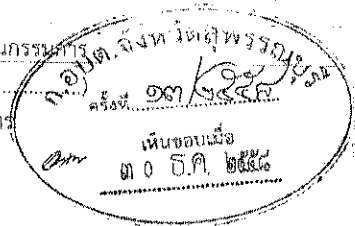 นกรรมการ
ก.อบต.จังหวัดสุพรรณบุรี
ครั้งที่ ๑๓/๒๕๕๘
เห็นชอบเมื่อ
๓ ๐ ธ.ค. ๒๕๕๘